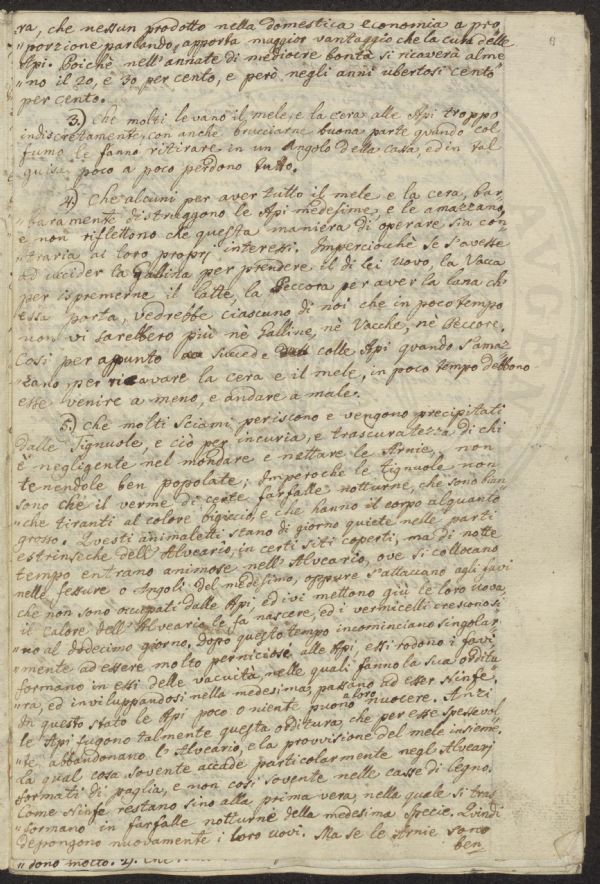 ra, che nessun prodotto nella domestica economia a pro„
„porzione parlando, apporta maggior vantaggio che la cura delle
Api. Poichè nell'annate di mediocre bontà si ricaverà alme„
„no il 20, e 30 per cento, e però negli anni ubertosi cento
per cento.
3.) Che molti levano il mele, e la cera alle Api troppo
indiscretamente, con anche brucciarne buona parte quando col
fumo le fanno ritirare in un angolo della cassa, ed in tal
guisa, poco a poco perdono tutto.
4.) Che alcuni per aver tutto il mele e la cera, bar„
„baramente distruggono le Api medesime, e le amazzano,
e non riflettono che questa maniera di operare sia con„
„traria ai loro proprj interessi. Imperciochè se s'avesse
ad uccider la Gallina per prendere il di lei vovo, la Vacca
per ispremerne il latte, la Peccora per aver la lana ch'
essa porta, vedrebbe ciascuno di noi che in poco tempo
non vi sarebbero più nè Galline, nè Vacche, nè Peccore.
Così per apunto succede colle Api quando s'amaz„
„zano per ricavare la cera e il mele, in poco tempo debbono
esse venire a meno, e andare a male.
5.) Che molti sciami periscono e vengono precipitati
dalle Tignuole, e ciò per incuria, e trascuratezza di chi
è negligente nel mondare e nettare le Arnie, non
tenendole ben popolate; Imperochè le tignuole non
sono che il verme di certe farfalle notturne, che sono bian„
„che tiranti al colore bigiccio, e che hanno il corpo alquanto
grosso. Questi animaletti stano di giorno quiete nelle parti
estrinseche dell'Alveario, in certi siti coperti, ma di notte
tempo entrano animose nell'Alveario, ove si collocano
nelle fessure o Angoli del medesimo, oppure s'attaccano agli favi
che non sono occupati dalle Api, ed ivi mettono giù le loro vova,
il calore dell'Alveario le fa nascere, ed i vermicelli cresconosi
„no al dodecimo giorno. Dopo questo tempo incominciano singolar„
„mente ad essere molto perniciose alle Api, essi rodono i favi,
formano in essi delle vacuità, nelle quali fanno la sua orditu„
„ra, ed inviluppandosi nella medesima, passano ad esser Ninfe.
In questo stato le Api poco o niente puono a loro nuocere. Anzi
le Api fugono talmente questa orditura, che per esse spessevol„
„te, abbandonano lo Alveario, e la provvisione del mele insieme,
la qual cosa sovente accade particolarmente negl'Alvearj
formati di paglia, e non così sovente nelle casse di legno.
Come Ninfe restano sino alla prima vera, nella quale si tras„
„formano in farfalle notturne della medesima specie. Quindi
depongono nuovamente i loro vovi. Ma se le Arnie sono
ben